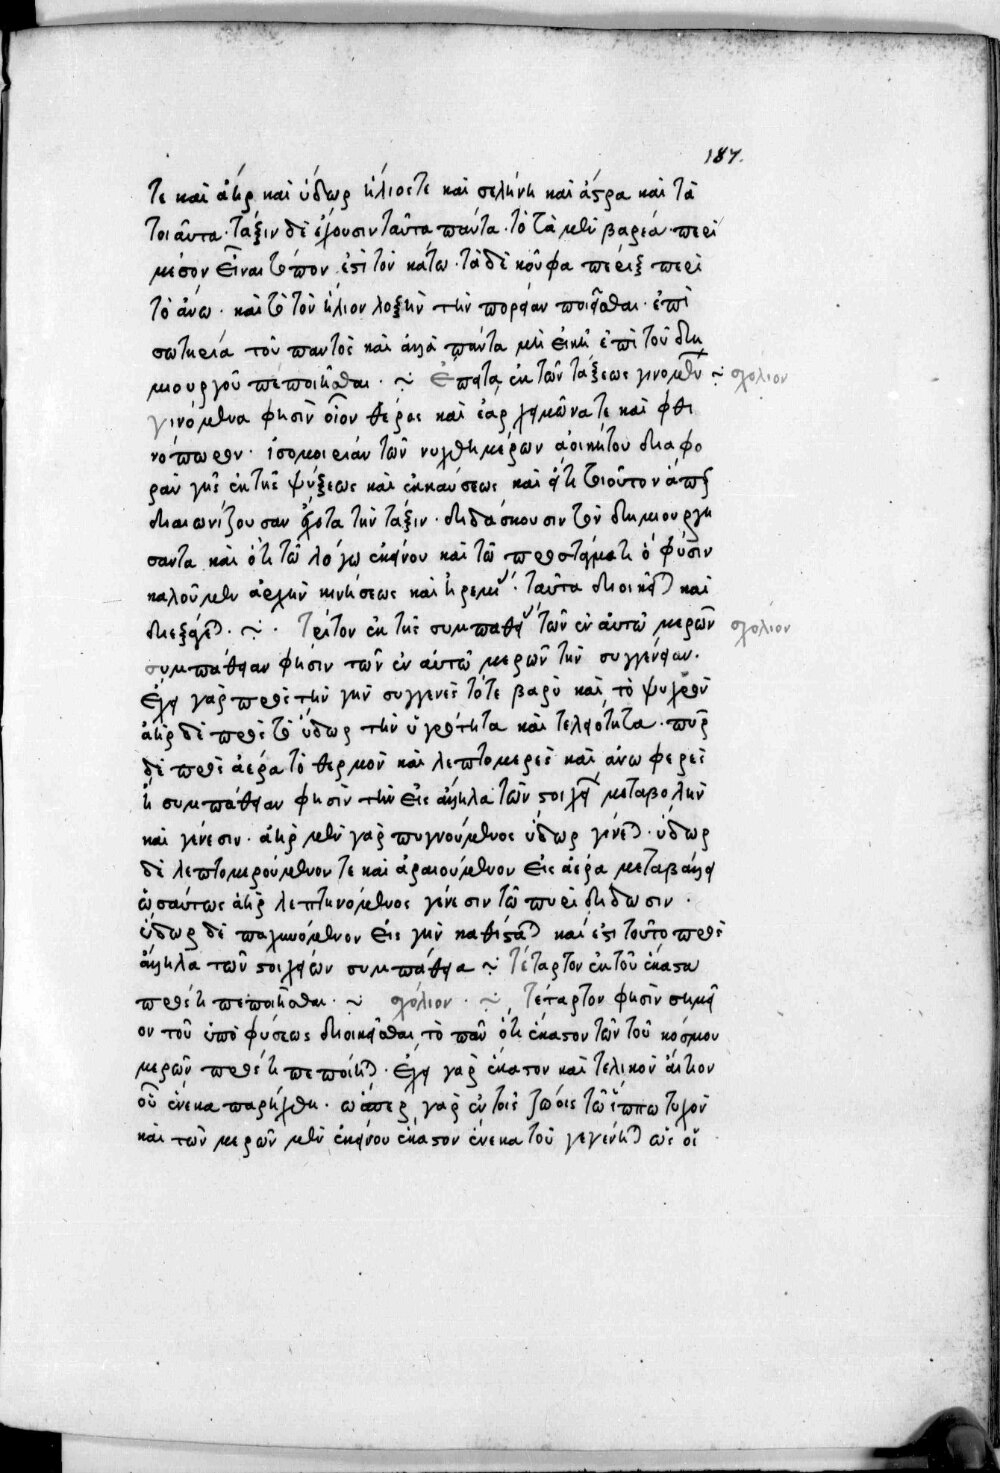 187.
τε καὶ ἀὴρ καὶ ὕδωρ ἥλιός τε καὶ σελήνη καὶ ἄστρα καὶ τὰ
τοιαῦτα· τάξιν δὲ ἔχουσιν ταῦτα πάντα· τὸ τὰ μὲν βαρέα περὶ
μέσον εἶναι τόπον ἐστὶ τὸν κάτω· τὰ δὲ κοῦφα πέριξ περὶ
τὸ ἄνω· καὶ τὸ τὸν ἥλιον λοξὴν τὴν πορείαν ποιεῖσθαι· ἐπὶ
σωτηρία τοῦ παντὸς καὶ ἀλλὰ πάντα μὴ εἰκῆ ἐπὶ τοῦ δη
μιουργοῦ πεποιῆσθαι· ~ Ἔπειτα ἐκ τῶν τάξεως γινομένων ~ σχόλιον
γινόμενα φησὶν οἷον θέρος καὶ ἔαρ χειμῶνα τε καὶ φθι
νόπωρον· ἰσομοιρίαν τῶν νυχθημέρων ἀοικήτου διαφο
ρὰν γῆς ἐκ τῆς ψύξεως καὶ ἐκκαύσεως καὶ ὅτι τοιοῦτον
διαιωνίζουσαν τὴν τάξιν· διδάσκουσιν τὸν δημιουργή
σαντα καὶ ὅτι τῶ λόγω ἐκείνου καὶ τῶ προστάγματι ὁ φύσιν
καλοῦμεν ἀρχὴν κινήσεως καὶ ἠρεμίας· ταῦτα διοικεῖται καὶ
διεξάγεται· ~ · Τρίτον ἐκ τῆς συμπαθείας τῶν ἐν αὐτῶ μερῶν σχόλιον
συμπάθειαν φησιν τῶν ἐν αὐτῶ μερῶν τὴν συγγένειαν·
ἔχει γὰρ πρὸς τὴν γῆν συγγενὲς τό τε βαρὺ καὶ τὸ ψυχρὸν
ἀὴρ δὲ πρὸς τὸ ὕδωρ τὴν ὑγρότητα καὶ τελειότητα· πῦρ
δὲ πρὸς ἀέρα τὸ θερμὸν καὶ λεπτομερὲς καὶ ἀνωφερὲς
ἢ συμπάθειαν φησὶν τὴν εἰς ἄλληλα τῶν στοιχείων μεταβολὴν
καὶ γένεσιν· ἀὴρ μὲν γὰρ πυκνούμενος ὕδωρ γίνεται· ὕδωρ
δὲ λεπτομερούμενον τε καὶ ἀραιούμενον εἰς ἀέρα μεταβάλλει
ὡσαύτως ἀὴρ λεπτυνόμενος γένεσιν τῶ πυρὶ δίδωσιν·
ὕδωρ δὲ παχυνόμενον εἰς γῆν καθίσταται καὶ ἐστὶ τοῦτο πρὸς
ἄλληλα τῶν στοιχείων συμπάθεια ~ Τέταρτον ἐκ τοῦ ἕκαστα
πρός τι πεποιῆσθαι· ~ σχόλιον· ~ Τέταρτον φησὶν σημεῖ
ον τοῦ ὑπὸ φύσεως διοικεῖσθαι τὸ πᾶν ὅτι ἕκαστον τῶν τοῦ κόσμου
μερῶν πρός τι πεποίηται· ἔχει γὰρ ἕκαστον καὶ τελικὸν αἴτιον
οὗ ἕνεκα παρήχθη· ὥσπερ γὰρ ἐν τοῖς ζώοις τῶ ἵππω τυχὸν
καὶ τῶν μερῶν μὲν ἐκείνου ἕκαστον ἕνεκα τοῦ γεγένηται ὡς οἱ